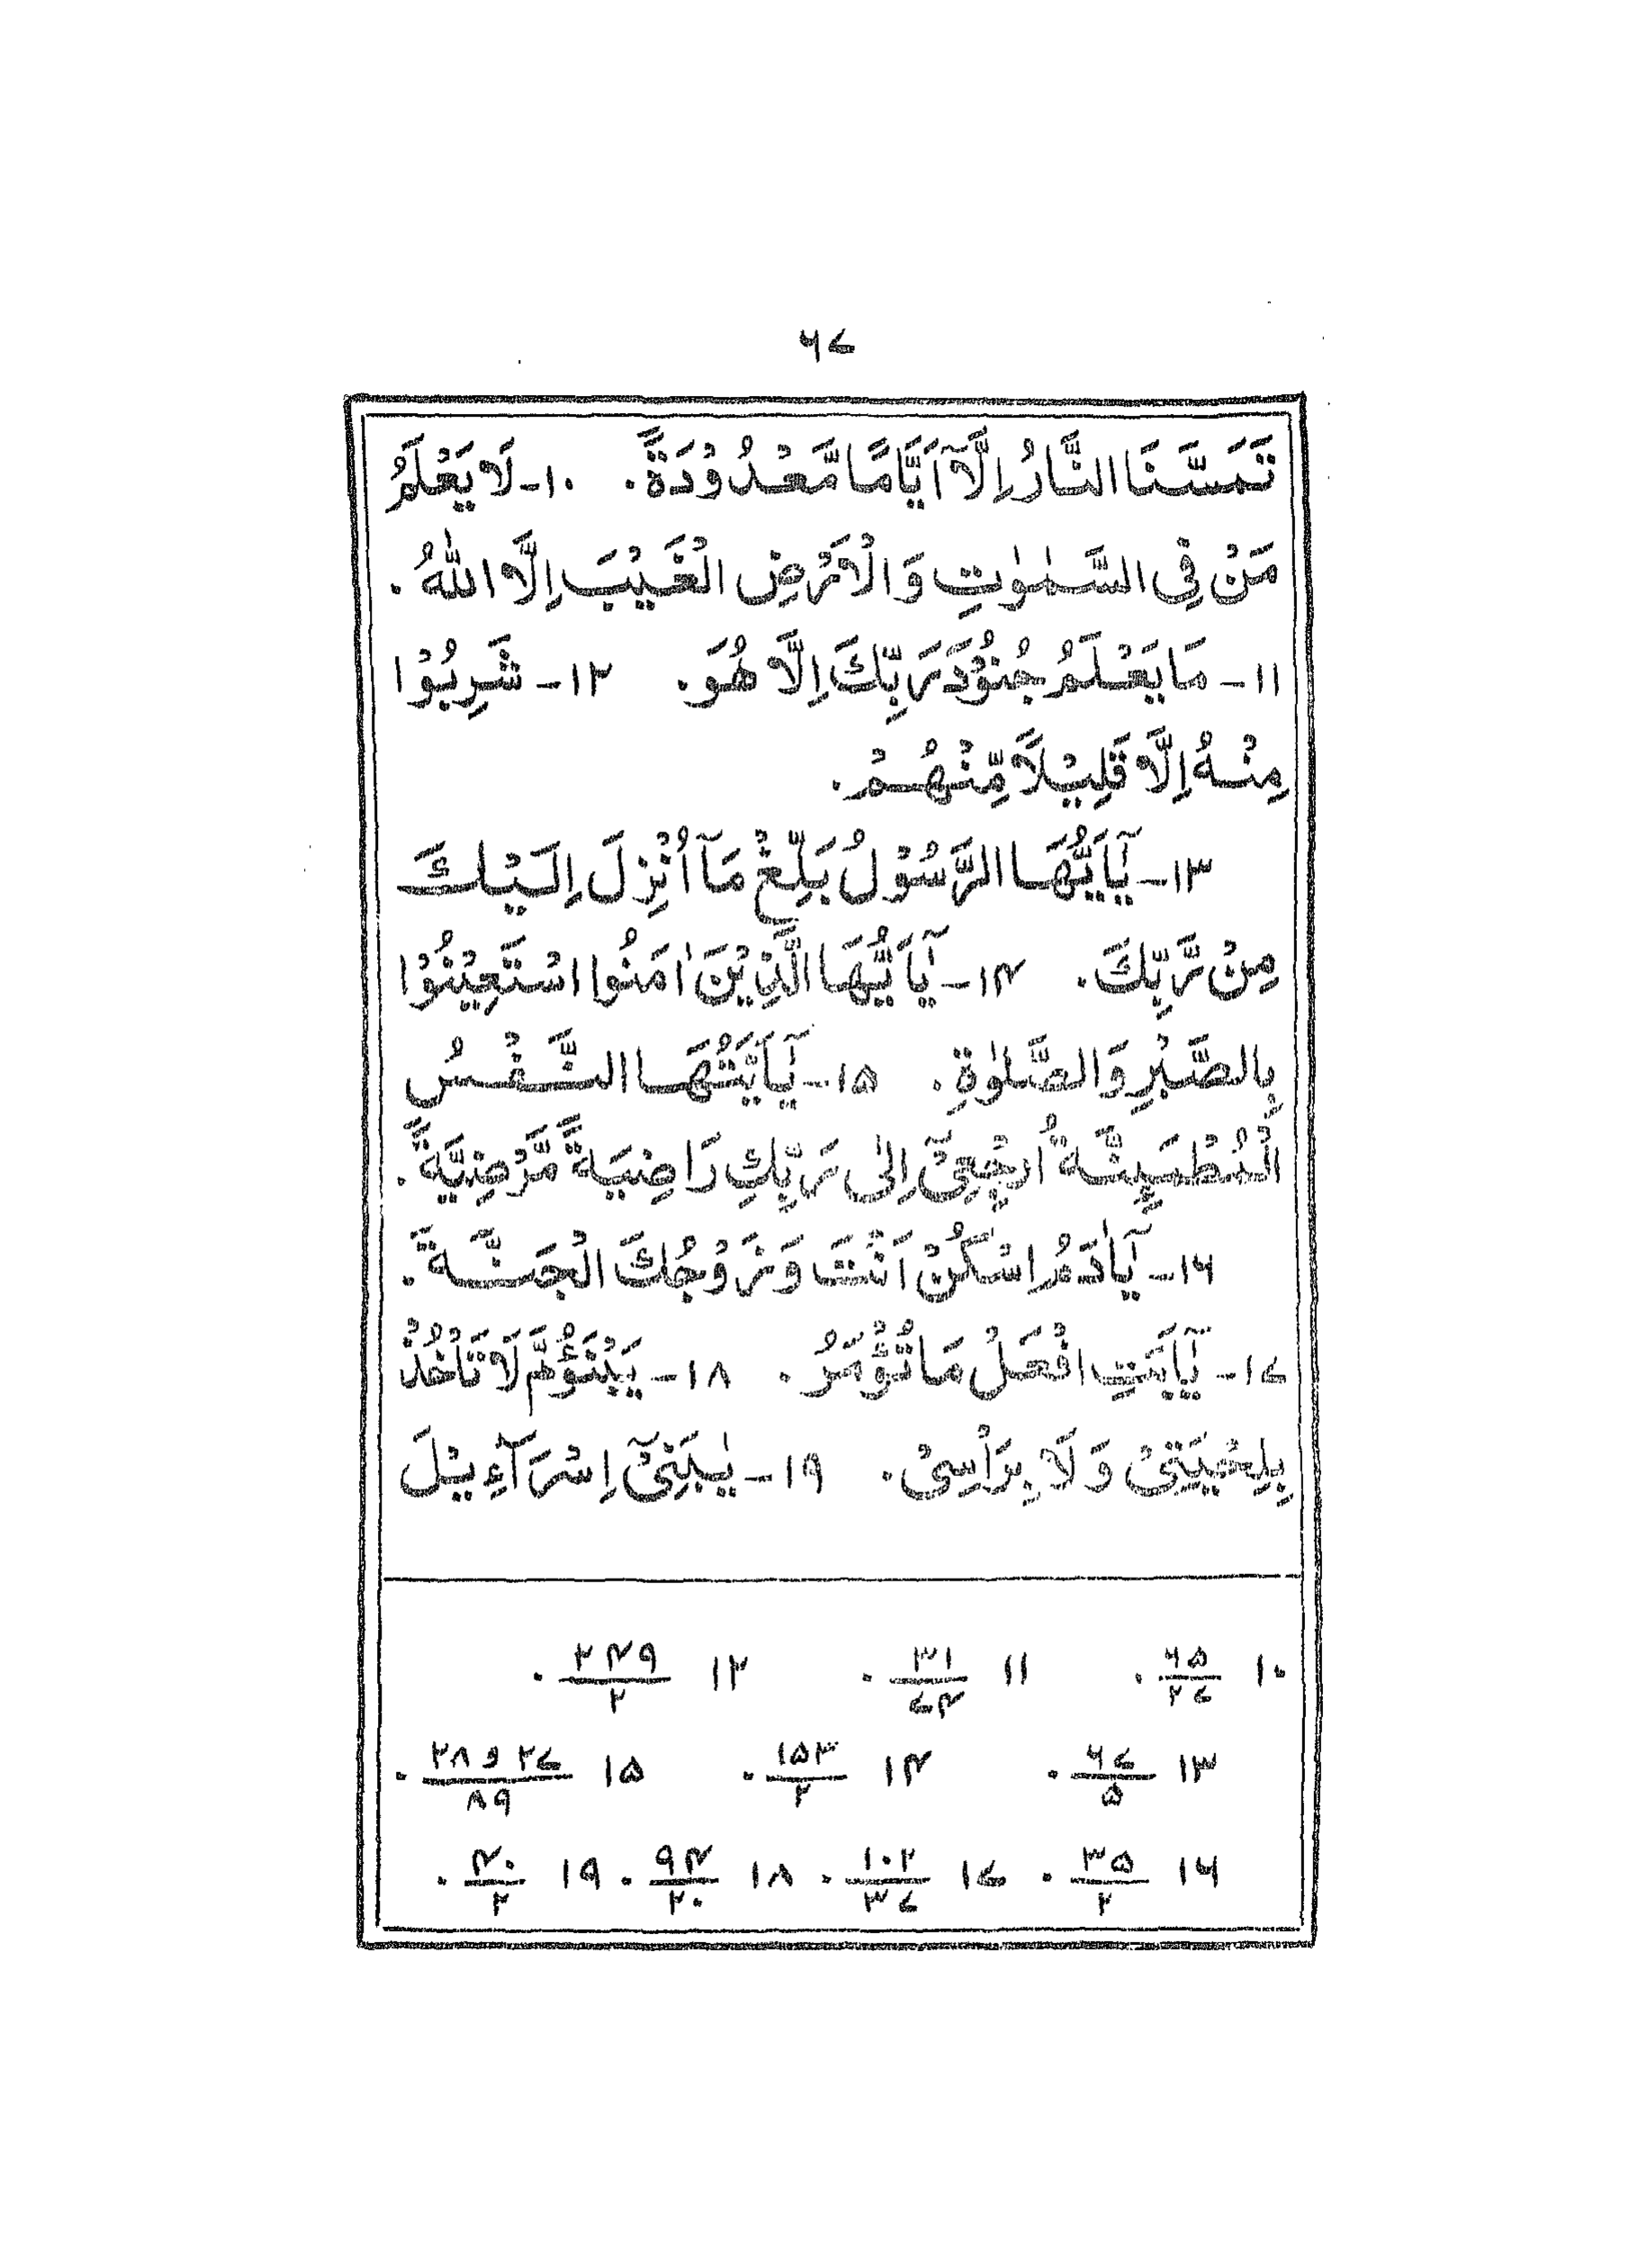 ۶۷
تَمَسَّنَا النَّارُ اِلَّآ اَيَّامًا مَّعْدُوْدَةً۔ ۱۰۔ لَا يَعْلَمُ
مَنْ فِى السَّمٰوٰتِ وَالْاَرْضِ الْغَيْبَ اِلَّا اللهُ۔
۱۱۔ مَا يَعْلَمُ جُنُوْدَ رَبِّكَ اِلَّا هُوَ۔ ۱۲۔ شَرِبُوْا
مِنْهُ اِلَّا قَلِيْلًا مِّنْهُمْ۔
۱۳۔ يٰٓاَيُّهَا الرَّسُوْلُ بَلِّغْ مَآ اُنْزِلَ اِلَيْكَ
مِنْ رَّبِّكَ۔ ۱۴۔ يٰٓاَيُّهَا الَّذِيْنَ اٰمَنُوا اسْتَعِيْنُوْا
بِالصَّبْرِ وَالصَّلٰوةِ۔ ۱۵۔ يٰٓاَيَّتُهَا النَّفْسُ
الْمُطْمَئِنَّةُ ارْجِعِىْٓ اِلٰى رَبِّكِ رَاضِيَةً مَّرْضِيَّةً۔
۱۶۔ يٰٓاٰدَمُ اسْكُنْ اَنْتَ وَزَوْجُكَ الْجَنَّةَ۔
۱۷۔ يٰٓاَبَتِ افْعَلْ مَا تُؤْمَرُ۔ ۱۸۔ يَبْنَؤُمَّ لَا تَاْخُذْ
بِلِحْيَتِىْ وَلَا بِرَاْسِىْ۔ ۱۹۔ يٰبَنِىْٓ اِسْرَآءِيْلَ
۱۰ ۶۵/۲۷۔ ۱۱ ۳۱/۷۴۔ ۱۲ ۲۴۹/۲۔
۱۳ ۶۷/۵۔ ۱۴ ۱۵۳/۲۔ ۱۵ ۲۷ و ۲۸/۸۹۔
۱۶ ۳۵/۲۔ ۱۷ ۱۰۲/۳۷۔ ۱۸ ۹۴/۲۰۔ ۱۹ ۴۰/۲۔